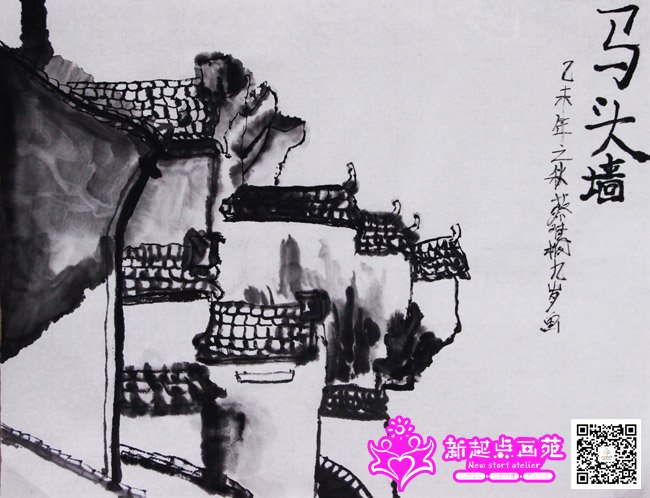 马头墙
乙未年之秋蔡琪桐九岁画
新起点画苑
New start atelier